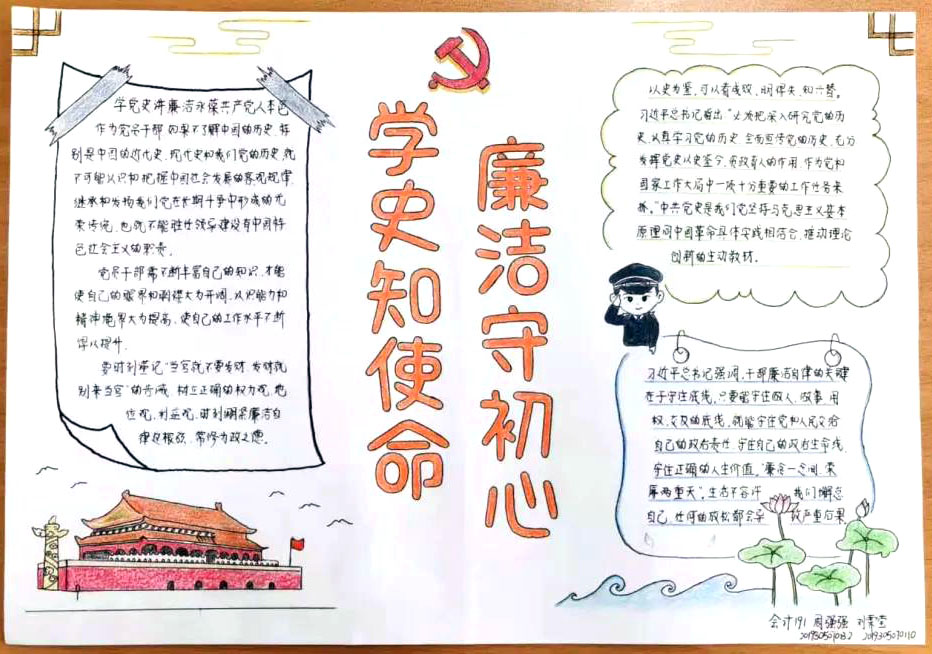 学史知使命
廉洁守初心
学党史讲廉洁永葆共产党人本色
作为党员干部如果不了解中国的历史,特
别是中国的近代史、现代史和我们党的历史,就
不可能认识和把握中国社会发展的客观规律,
继承和发扬我们党在长期斗争中形成的光
荣传统,也就不能胜任领导建设有中国特
色社会主义的职责。
党员干部需不断丰富自己的知识,才能
使自己的眼界和胸襟大为开阔,认识能力和
精神境界大为提高,使自己的工作水平不断
得以提升。
要时刻牢记“当官就不要发财,发财就
别来当官”的告诫,树立正确的权力观、地
位观、利益观,时刻绷紧廉洁自
律这根弦,常修为政之德。
以史为鉴,可以看成败、明得失、知兴替。
习近平总书记指出:“必须把深入研究党的历
史、认真学习党的历史、全面宣传党的历史、充分
发挥党史以史鉴今、资政育人的作用,作为党和
国家工作大局中一项十分重要的工作任务来
抓。”中共党史是我们党坚持马克思主义基本
原理同中国革命具体实践相结合、推动理论
创新的生动教材。
习近平总书记强调,干部廉洁自律的关键
在于守住底线,只要能守住做人、做事、用
权、交友的底线,就能守住党和人民交给
自己的政治责任,守住自己的政治生命线,
守住正确的人生价值。“廉贪一念间,荣
辱两重天”。生态不容许 我们懈怠
自己,任何的放松都会导 致严重后果
会计191 周强强
201930507032 201930507010